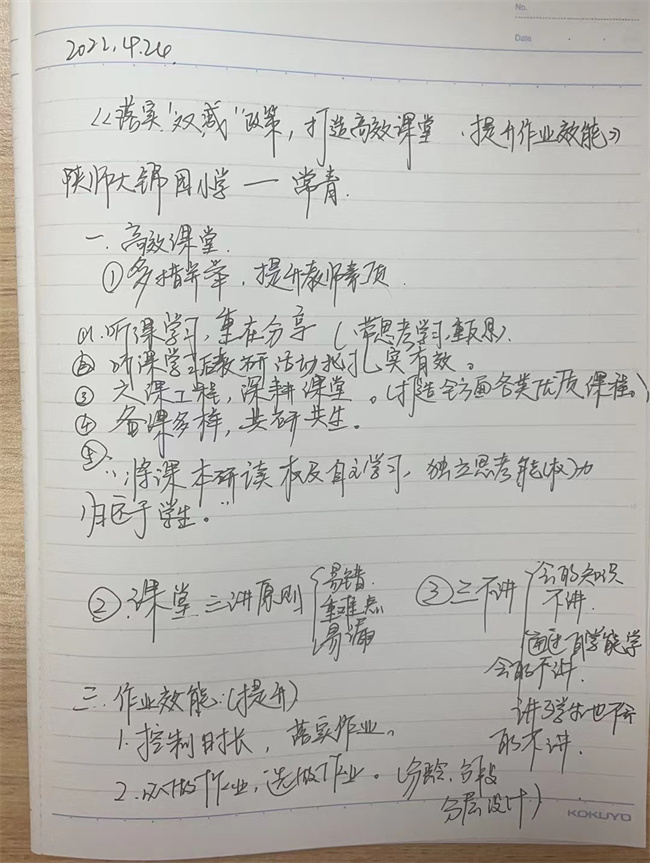 No.
Date
2022.4.24.
《落实"双减"政策，打造高效课堂、提升作业效能》
陕师大锦园小学 — 常青.
一. 高效课堂.
①多措并举，提升教师素质.
01. 听课学习，重在分享（带思考学习，重反思）.
② 听课学习后教研活动扎扎实有效。
③ 六课工程，深耕课堂。（打造全方面各类优质课程。）
④ 备课多样，共研共生。
⑤
"将课本研读权及自主学习，独立思考能（权）力
归还于学生。"
②. 课堂三讲原则 易错. 重难点 易漏
③三不讲 会的知识不讲. 通过自学能学会的不讲. 讲了学生也不会的不讲.
三. 作业效能:（提升）
1. 控制时长，落实作业。
2. 必做作业，选做作业。（分龄、分段
分层设计）
KOKUYO